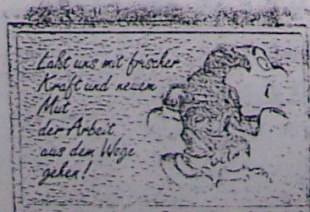 Laßt uns mit frischer
Kraft und neuem
Mut
der Arbeit
aus dem Wege
gehen!